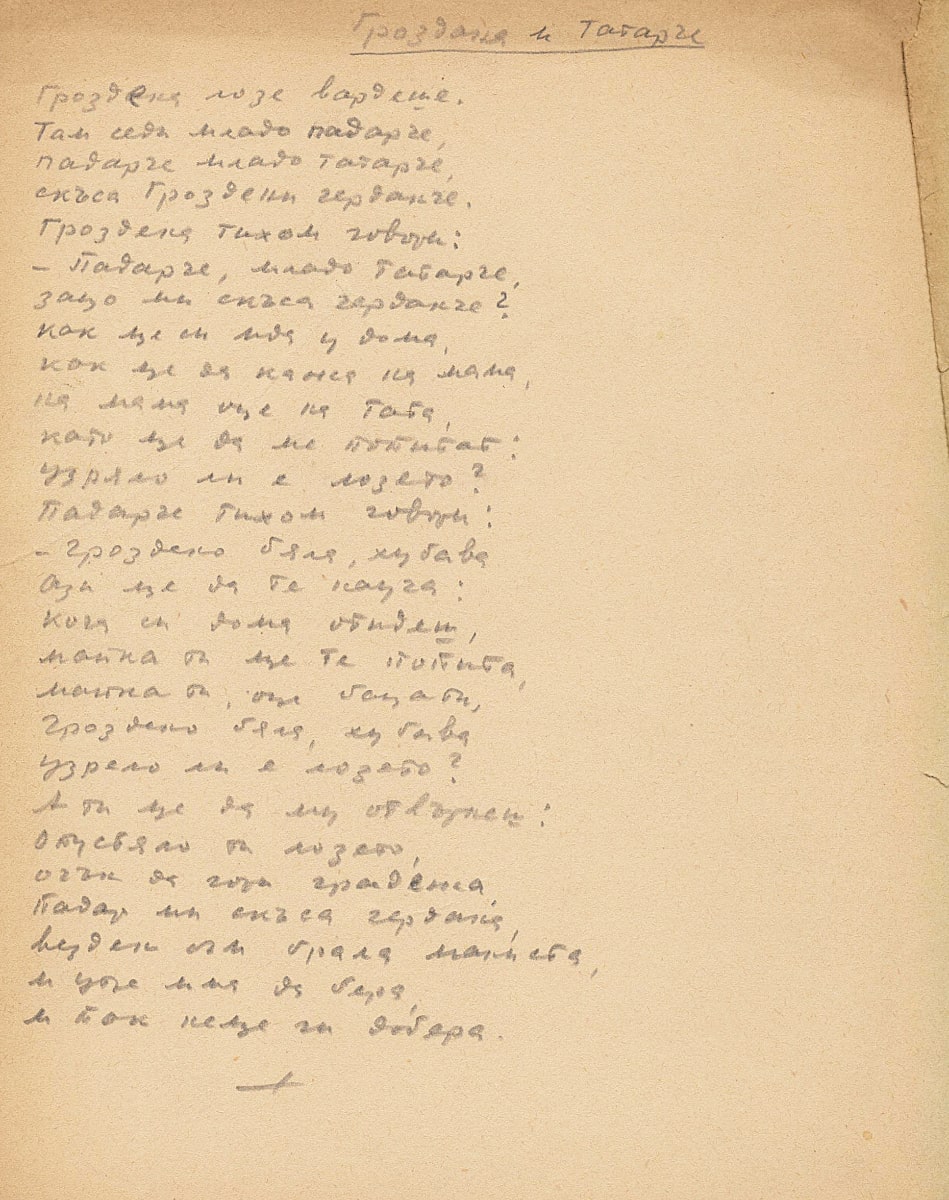 Гроздана и Татарче
Гроздена лозе вардеше.
Там седи младо падарче,
падарче младо татарче,
скъса Гроздени герданче.
Гроздена тихом говори:
– Падарче, младо татарче,
защо ми скъса герданче?
как ще си ида у дома,
как ще да кажа на мама,
на мама още на тата,
като ще да ме попитат:
узряло ли е лозето?
Падарче тихом говори:
– Гроздено бяла, хубава
Ази ще да те науча:
Кога си дома отидеш,
майка ти ще те попита,
майка ти, още баща ти,
Гроздено бяла, хубава
узрело ли е лозето?
А ти ще да му отвърнеш:
Опустяло ти лозето,
огън да гори
Падар ми скъса гердана,
везден съм брала маниста,
и утре има да бера,
и пак неще ги добера.